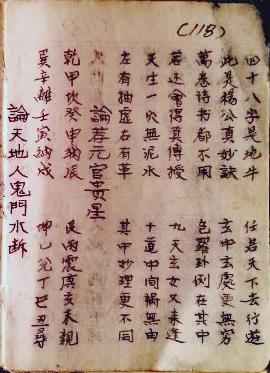 (118)
四十八字是地牛 任君天下去行遊
此是楊公真妙訣 玄中玄處更無窮
萬卷诗书都不用 色羅卦例在其中
若还會得真傅授 九天玄女又来逢
天生一穴無泥水 十道中间禍無由
左有抽虛右有 其中妙理更不同
論荐元官贵星
乾甲坎癸申納辰 艮丙震庚亥未親
巽辛離壬寅納戌 坤乙兑丁巳丑尋
論天地人鬼門水断